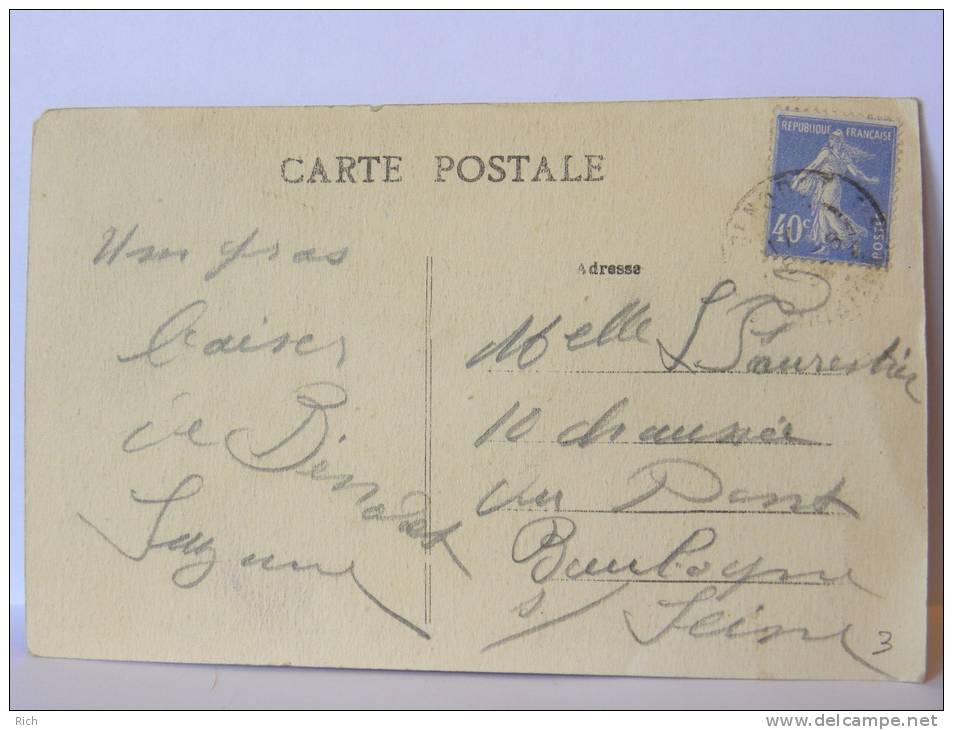 CARTE POSTALE
REPUBLIQUE FRANÇAISE
40c
POSTES
Um gros
baiser
de Bénodet
Suzanne
Adresse
Melle L.
10 chaussée
du Pont
Boulogne
s/ Seine
3
Rich
www.delcampe.net